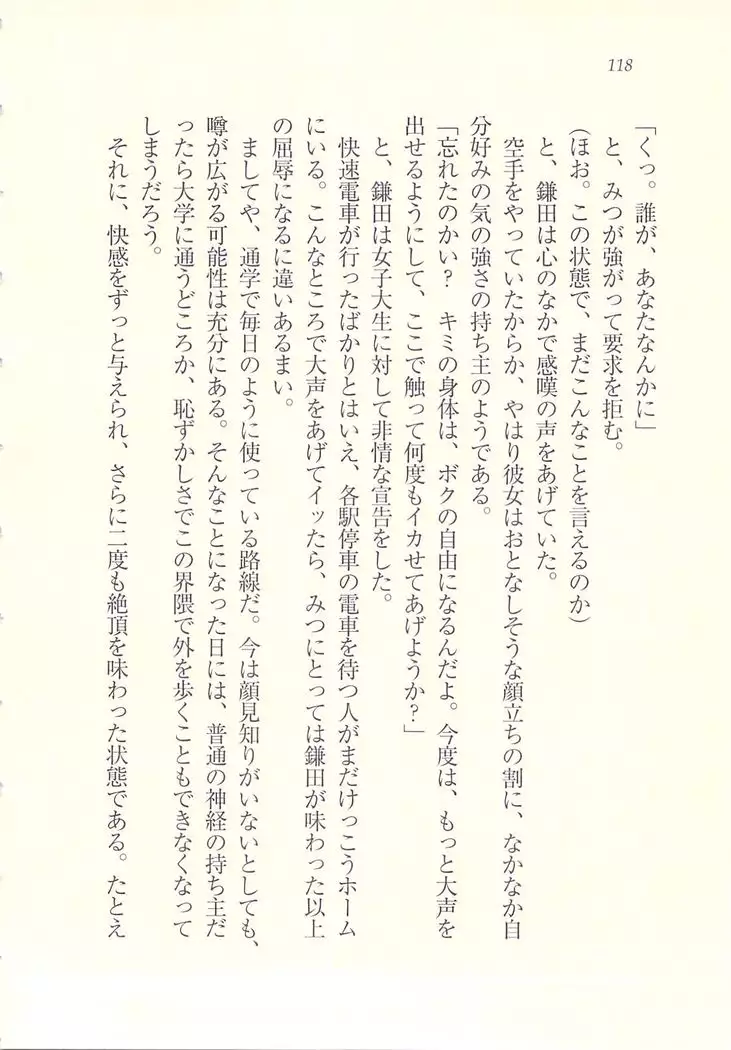 118
「くっ。誰が、あなたなんかに」
と、みつが強がって要求を拒む。
(ほお。この状態で、まだこんなことを言えるのか)
と、鎌田は心のなかで感嘆の声をあげていた。
空手をやっていたからか、やはり彼女はおとなしそうな顔立ちの割に、なかなか自
分好みの気の強さの持ち主のようである。
「忘れたのかい? キミの身体は、ボクの自由になるんだよ。今度は、もっと大声を
出せるようにして、ここで触って何度もイカせてあげようか?」
と、鎌田は女子大生に対して非情な宣告をした。
快速電車が行ったばかりとはいえ、各駅停車の電車を待つ人がまだけっこうホーム
にいる。こんなところで大声をあげてイッたら、みつにとっては鎌田が味わった以上
の屈辱になるに違いあるまい。
ましてや、通学で毎日のように使っている路線だ。今は顔見知りがいないとしても、
噂が広がる可能性は充分にある。そんなことになった日には、普通の神経の持ち主だ
ったら大学に通うどころか、恥ずかしさでこの界隈で外を歩くこともできなくなって
しまうだろう。
それに、快感をずっと与えられ、さらに二度も絶頂を味わった状態である。たとえ